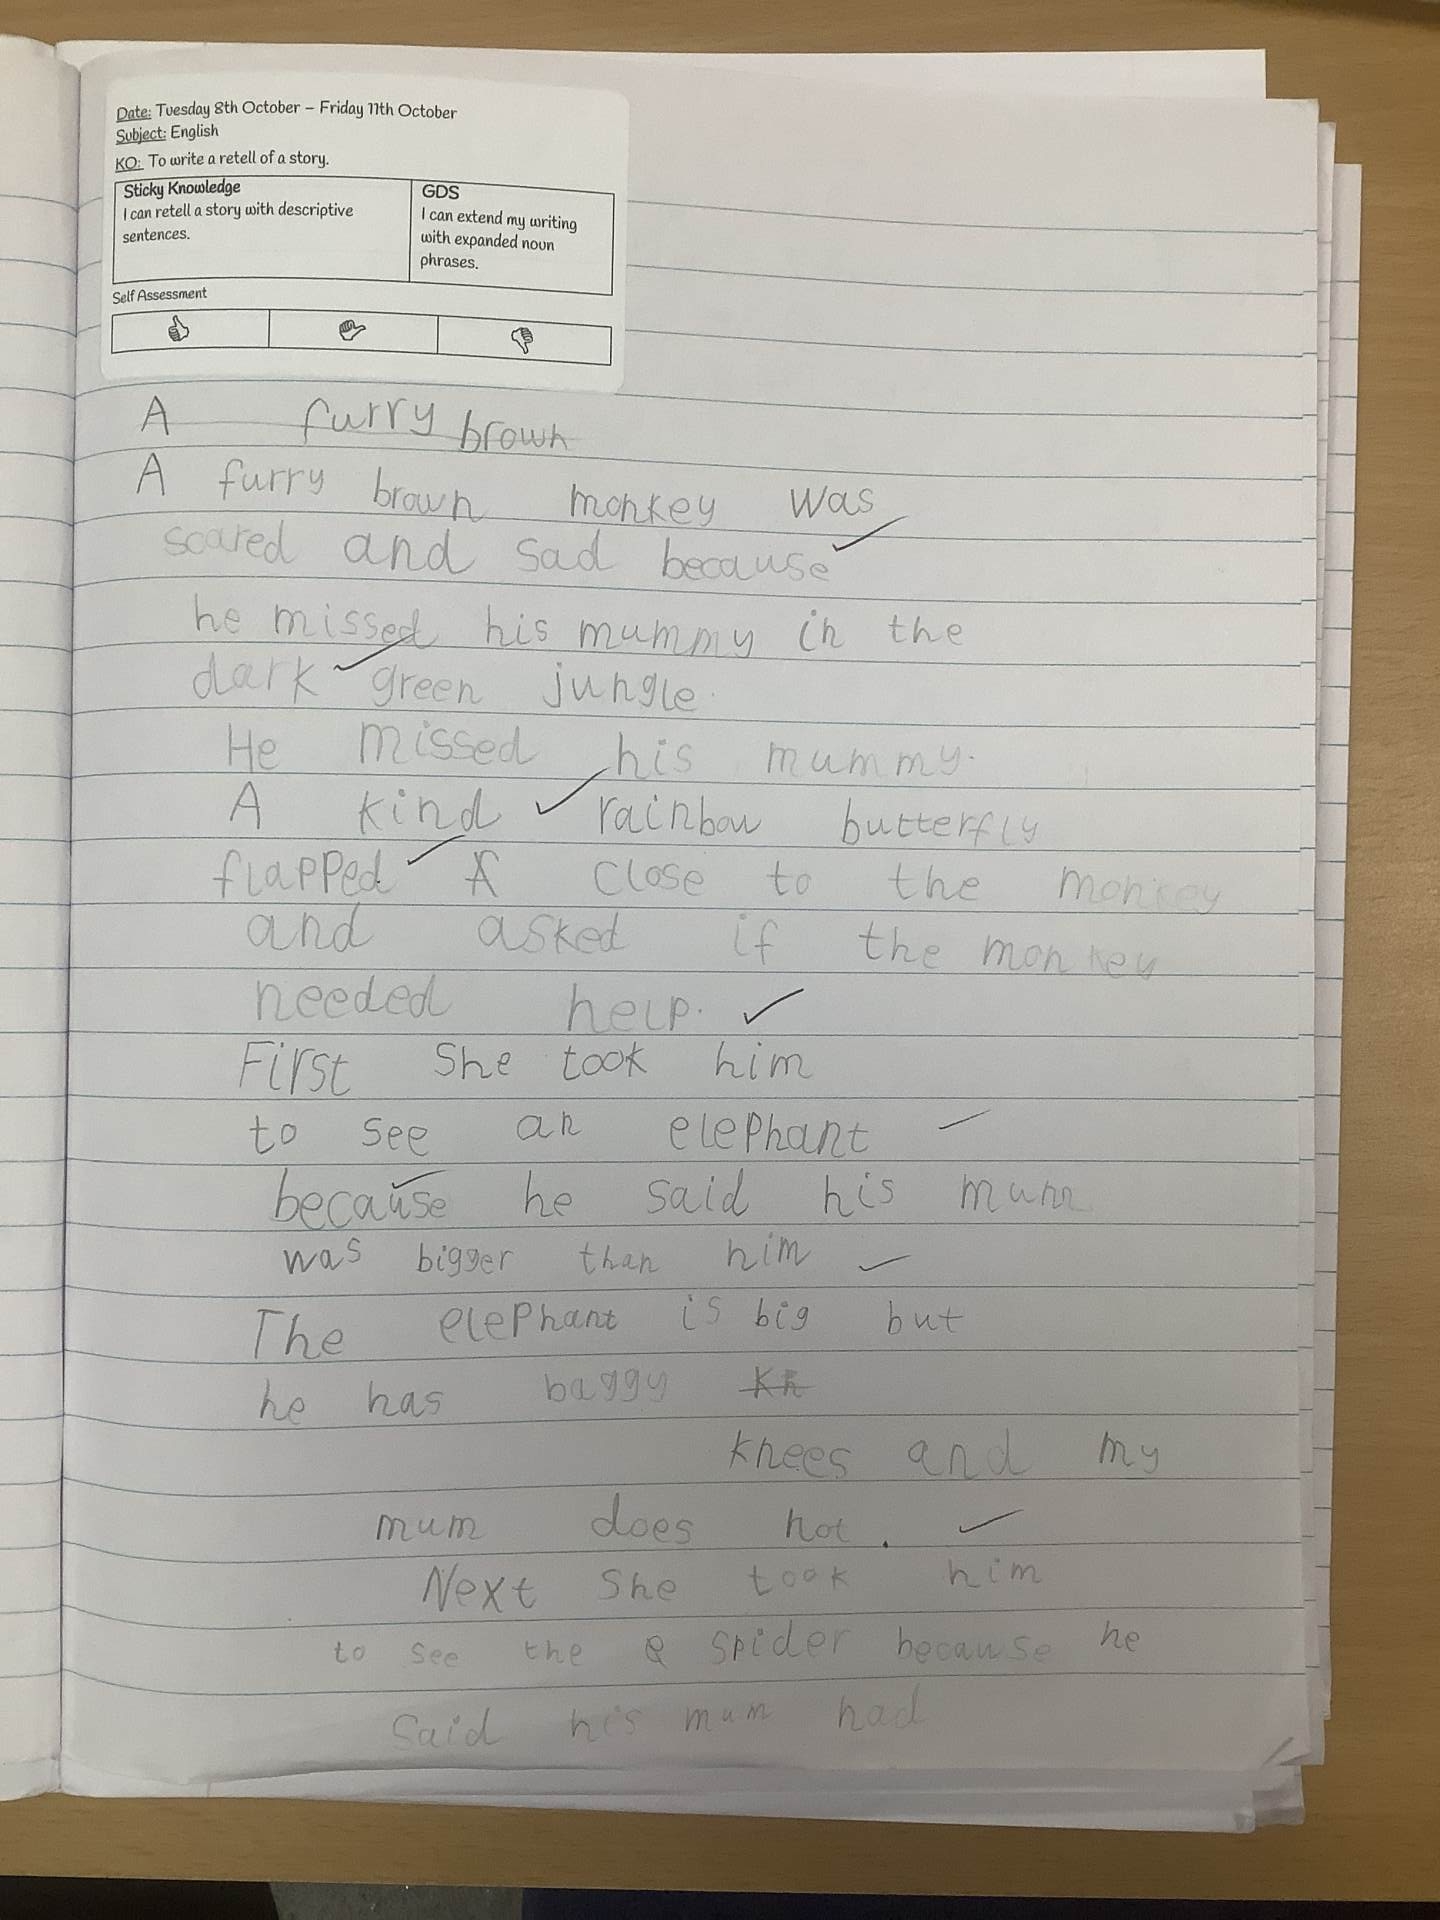 Date: Tuesday 8th October – Friday 11th October
Subject: English
KO: To write a retell of a story.
Sticky Knowledge
I can retell a story with descriptive
sentences.
GDS
I can extend my writing
with expanded noun
phrases.
Self Assessment
A furry brown
A furry brown monkey was
scared and sad because
he missed his mummy in the
dark green jungle.
He missed his mummy.
A kind rainbow butterfly
flapped close to the monkey
and asked if the monkey
needed help.
First She took him
to see an elephant
because he said his mum
was bigger than him
The elephant is big but
he has baggy
knees and my
mum does not.
Next She took him
to see the spider because he
said his mum had